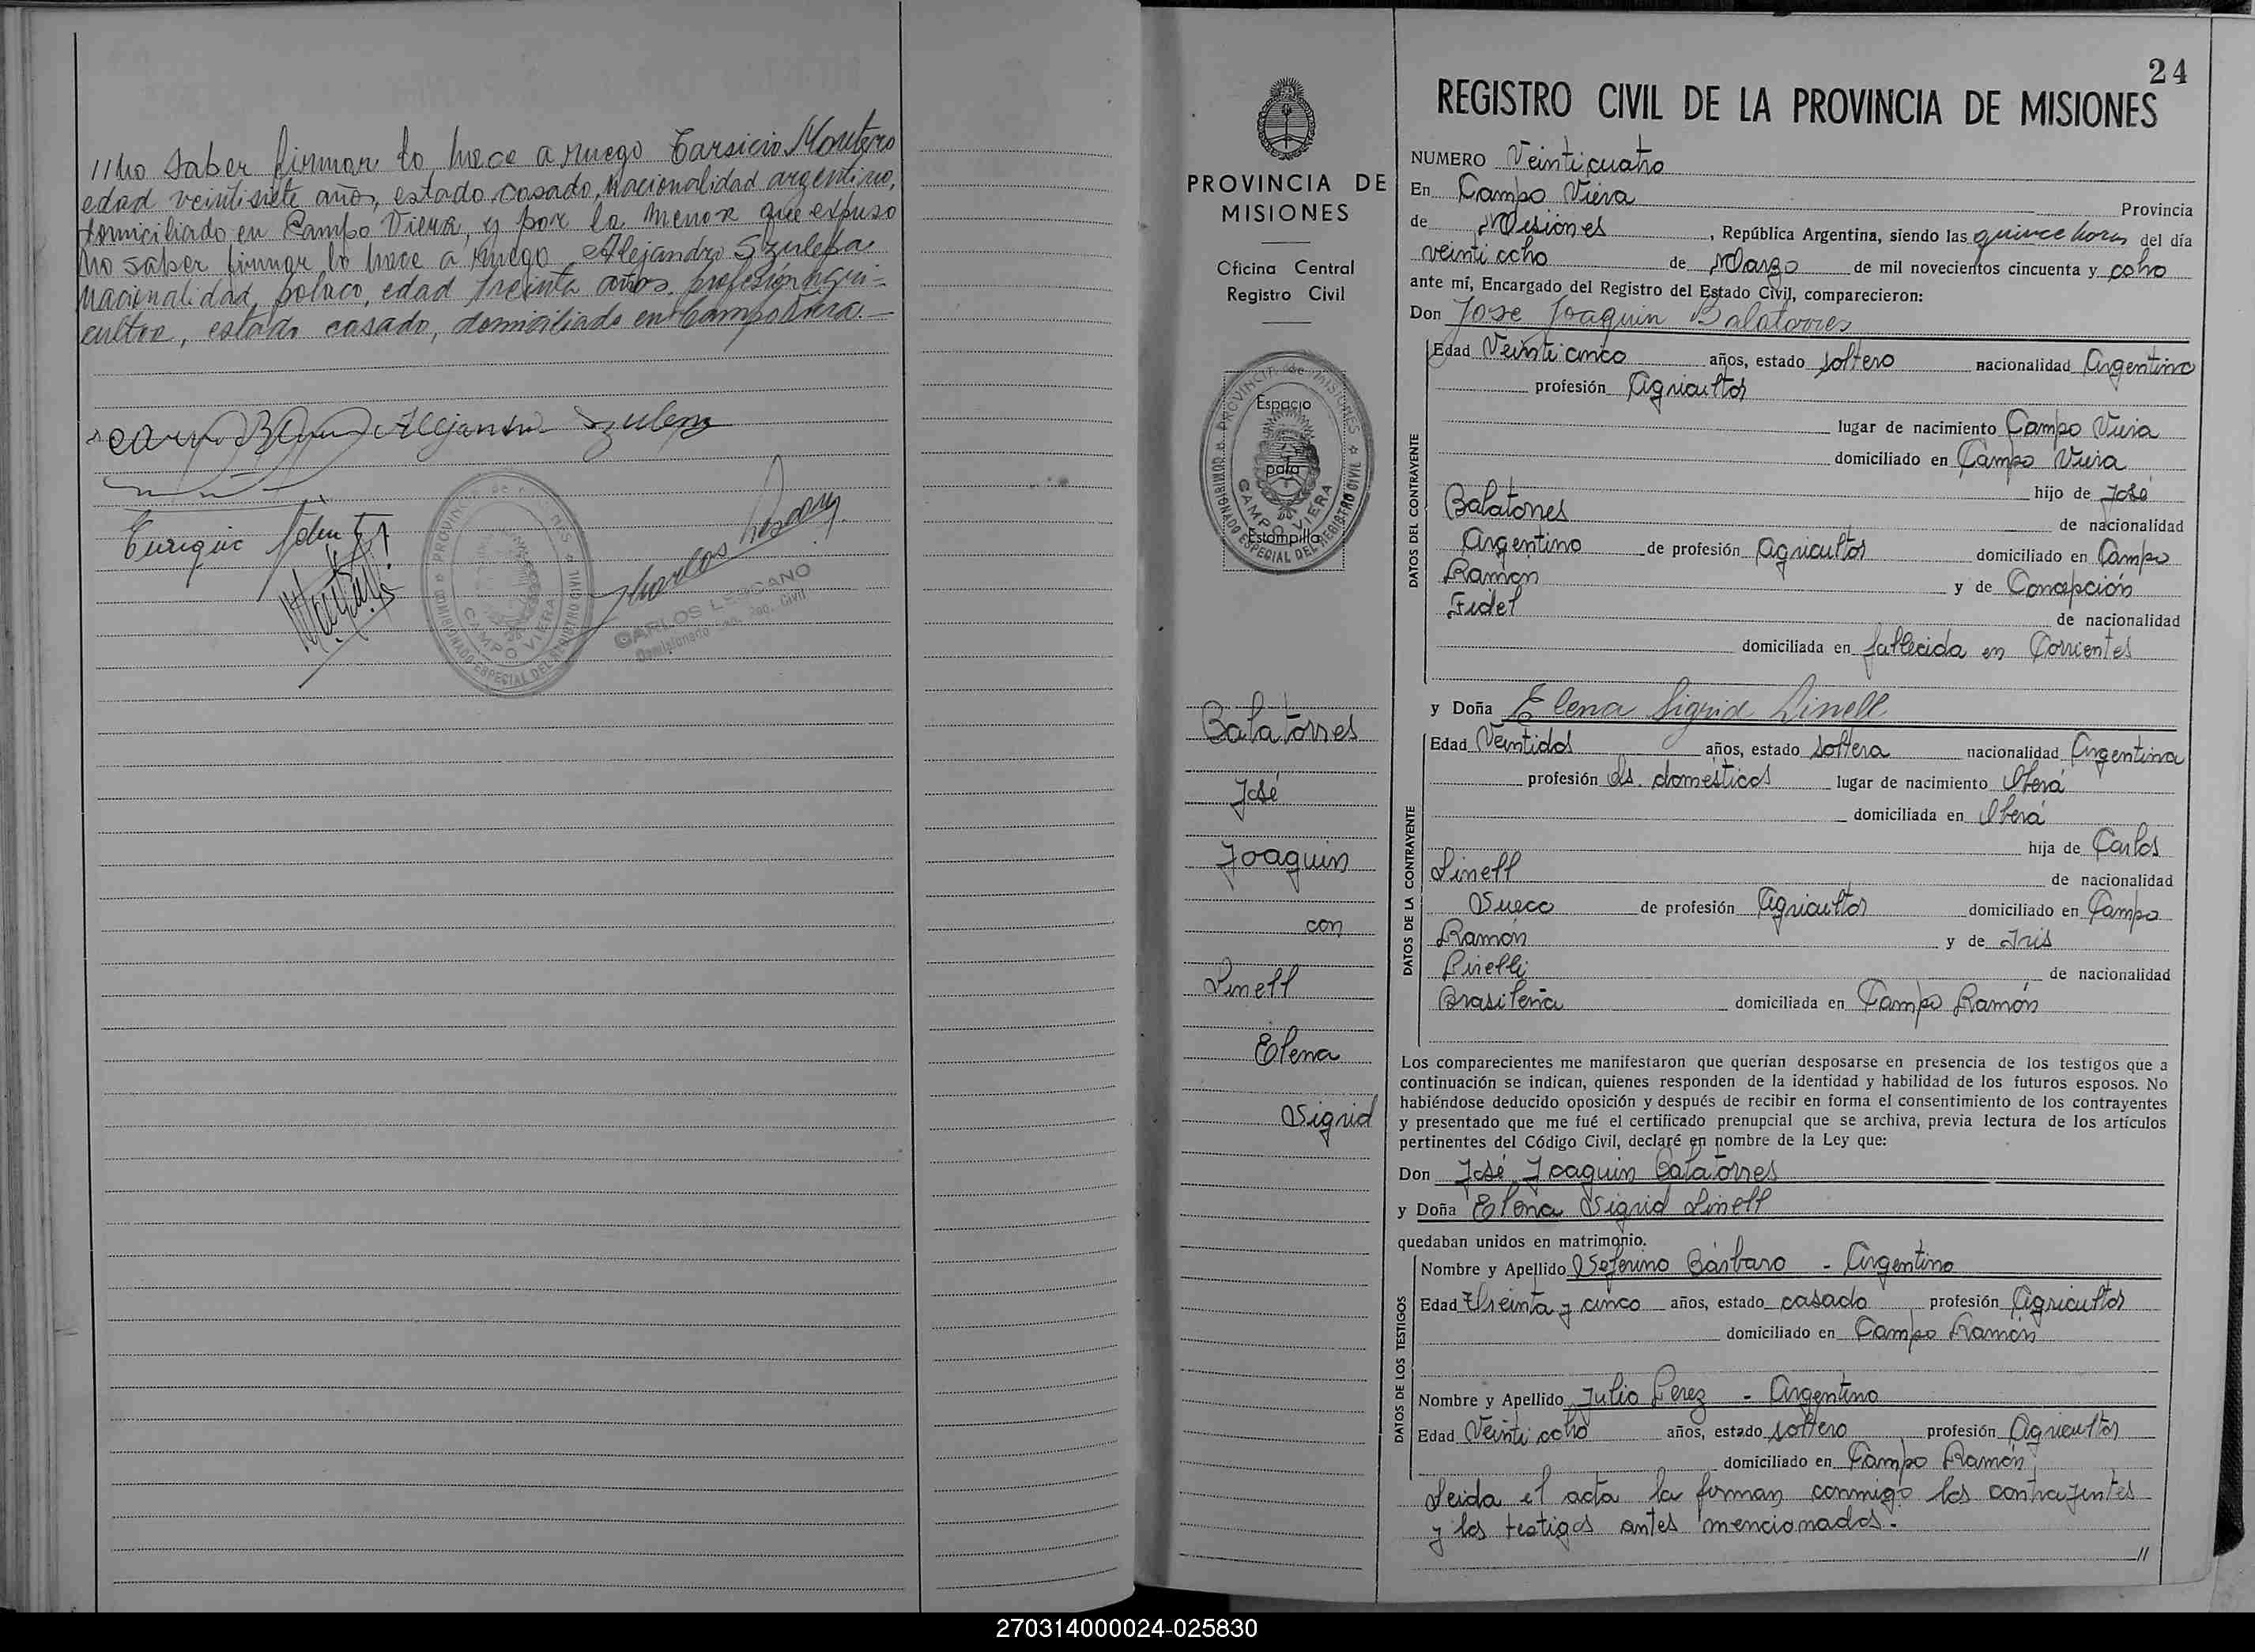 //no saber firmar lo hace a ruego Tarsicio Montero
edad veintisiete años, estado casado, nacionalidad argentino,
domiciliado en Campo Viera, y por la menor que expuso
no saber firmar lo hace a ruego Alejandro Szulepa
nacionalidad polaco, edad treinta años, profesión agri-
cultor, estado casado, domiciliado en Campo Viera.-
Alejandro Szulepa
Enrique
PROVINCIA de MISIONES
COMISIONADO ESPECIAL DEL REGISTRO CIVIL
CAMPO VIERA
Carlos Lescano
CARLOS LESCANO
Comisionado Esp. Reg. Civil
PROVINCIA DE
MISIONES
Oficina Central
Registro Civil
PROVINCIA de MISIONES
COMISIONADO ESPECIAL DEL REGISTRO CIVIL
CAMPO VIERA
Espacio
para
Estampilla
Balatorres
José
Joaquin
con
Linell
Elena
Sigrid
24
REGISTRO CIVIL DE LA PROVINCIA DE MISIONES
NUMERO Veinticuatro
En Campo Viera Provincia
de Misiones, República Argentina, siendo las quince horas del día
veinti ocho de Marzo de mil novecientos cincuenta y ocho
ante mí, Encargado del Registro del Estado Civil, comparecieron:
Don Jose Joaquin Balatorres
DATOS DEL CONTRAYENTE
Edad Veinti cinco años, estado soltero nacionalidad Argentino
profesión Agricultor
lugar de nacimiento Campo Viera
domiciliado en Campo Viera
hijo de José
Balatorres de nacionalidad
Argentino de profesión Agricultor domiciliado en Campo
Ramón y de Concepción
Fidel de nacionalidad
domiciliada en fallecida en Corrientes
y Doña Elena Sigrid Linell
DATOS DE LA CONTRAYENTE
Edad Veintidos años, estado soltera nacionalidad Argentina
profesión Qs. domésticos lugar de nacimiento Oberá
domiciliada en Oberá
hija de Carlos
Linell de nacionalidad
Sueco de profesión Agricultor domiciliado en Campo
Ramón y de Iris
Pirelli de nacionalidad
Brasileña domiciliada en Campo Ramón
Los comparecientes me manifestaron que querían desposarse en presencia de los testigos que a
continuación se indican, quienes responden de la identidad y habilidad de los futuros esposos. No
habiéndose deducido oposición y después de recibir en forma el consentimiento de los contrayentes
y presentado que me fué el certificado prenupcial que se archiva, previa lectura de los artículos
pertinentes del Código Civil, declaré en nombre de la Ley que:
Don José Joaquin Balatorres
y Doña Elena Sigrid Linell
quedaban unidos en matrimonio.
DATOS DE LOS TESTIGOS
Nombre y Apellido Seferino Bárbaro - Argentino
Edad Treinta y cinco años, estado casado profesión Agricultor
domiciliado en Campo Ramón
Nombre y Apellido Julio Perez - Argentino
Edad Veinti ocho años, estado soltero profesión Agricultor
domiciliado en Campo Ramón
Leida el acta la firman conmigo los contrayentes
y los testigos antes mencionados.-
//
270314000024-025830